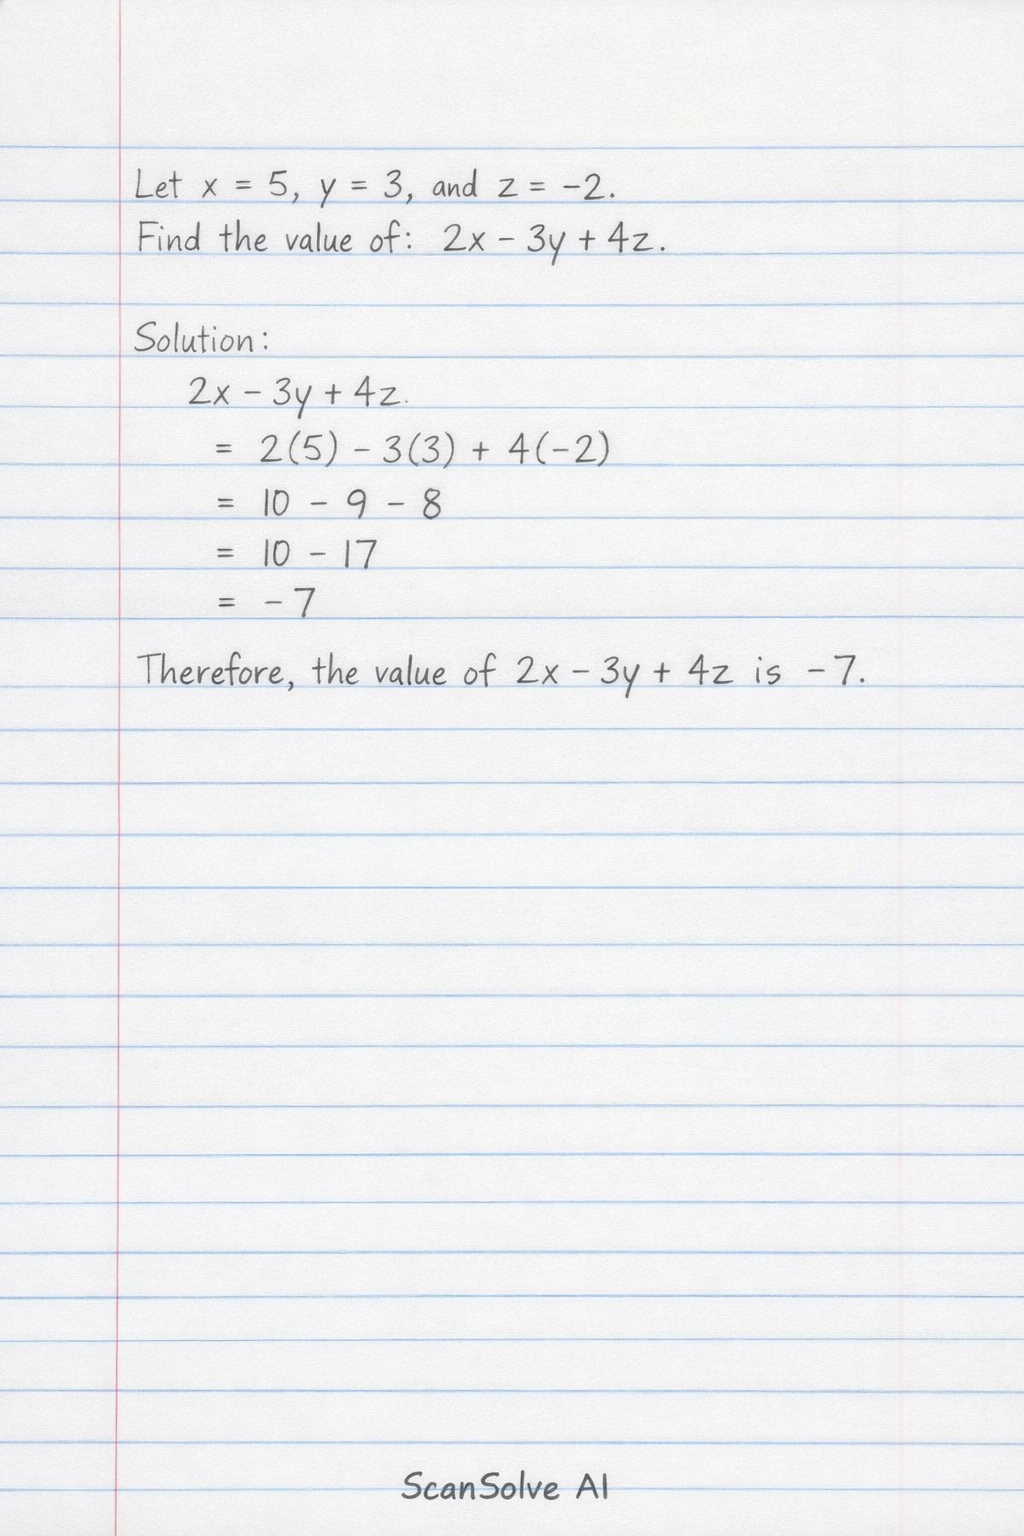 Let x = 5, y = 3, and z = -2.
Find the value of: 2x - 3y + 4z.
Solution:
2x - 3y + 4z.
= 2(5) - 3(3) + 4(-2)
= 10 - 9 - 8
= 10 - 17
= -7
Therefore, the value of 2x - 3y + 4z is -7.
ScanSolve AI